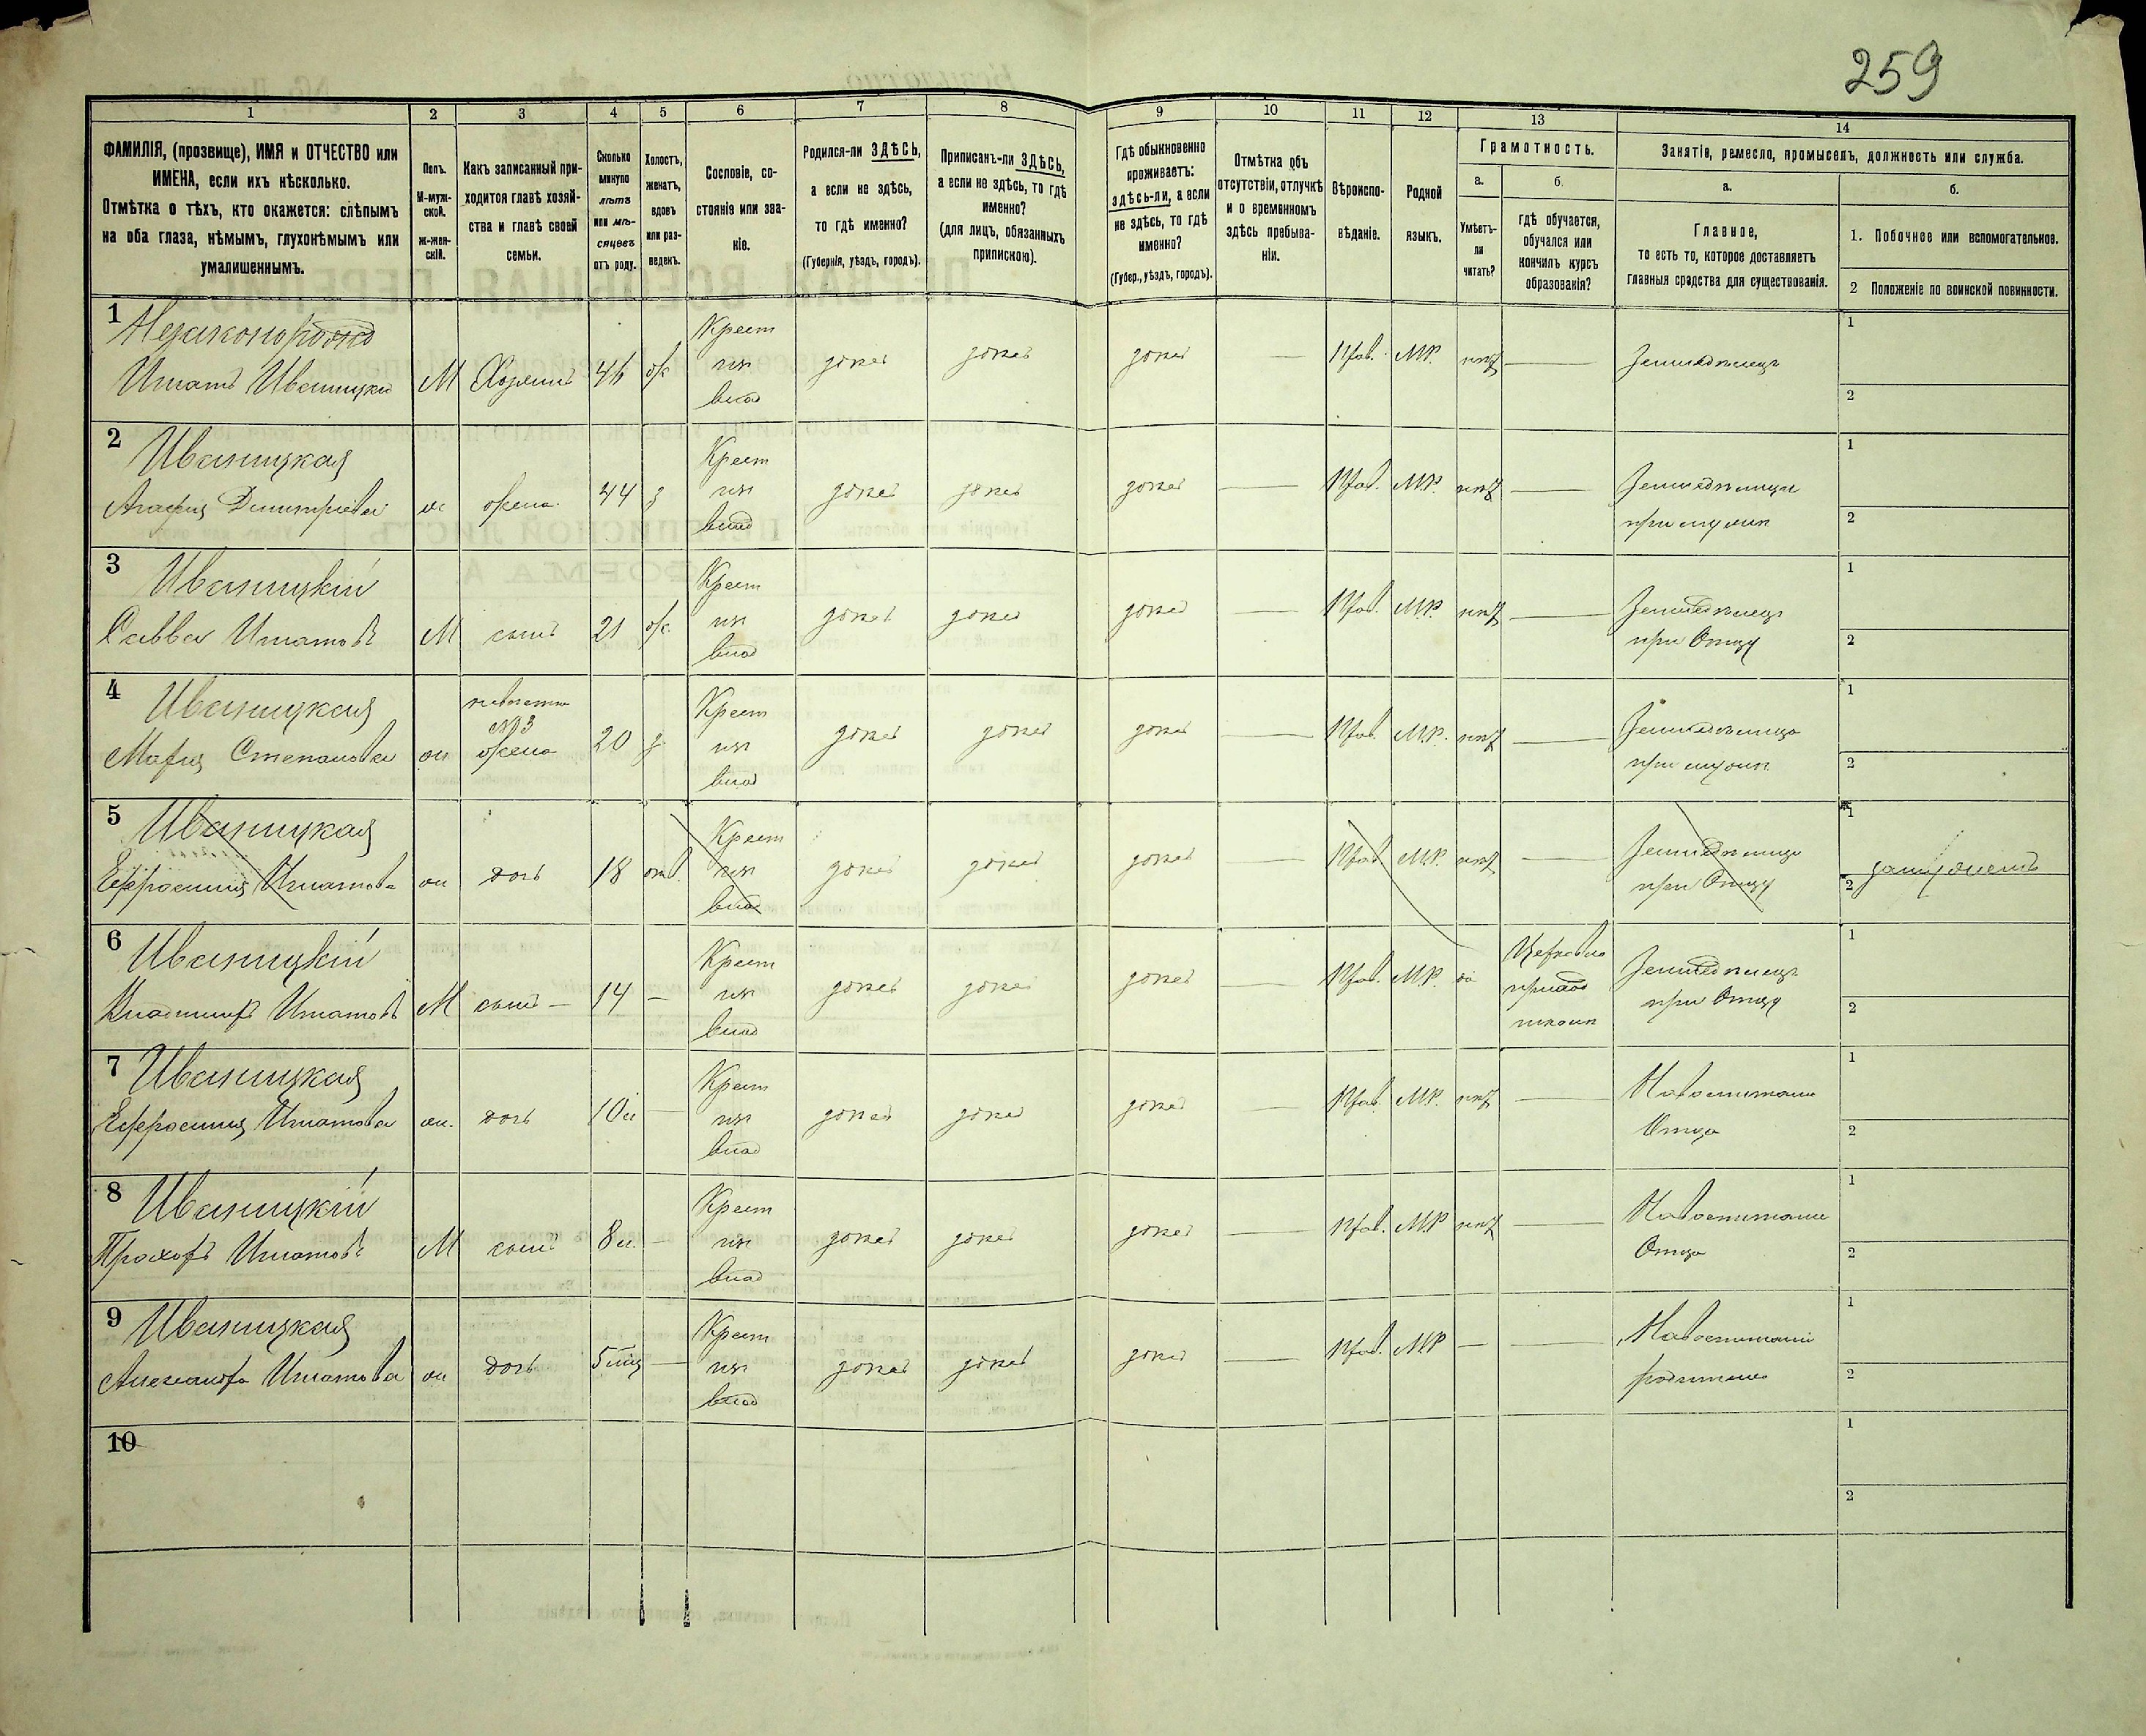 259
1
2
3
4
5
6
7
8
9
10
11
12
13
14
ФАМИЛІЯ, (прозвище), ИМЯ и ОТЧЕСТВО или
ИМЕНА, если ихъ нѣсколько.
Отмѣтка о тѣхъ, кто окажется: слѣпымъ
на оба глаза, нѣмымъ, глухонѣмымъ или
умалишеннымъ.
Полъ.
М-муж-
ской.
ж-жен-
скій.
Какъ записанный при-
ходится главѣ хозяй-
ства и главѣ своей
семьи.
Сколько
минуло
лѣтъ
или мѣ-
сяцевъ
отъ роду.
Холостъ,
женатъ,
вдовъ
или раз-
веденъ.
Сословіе, со-
стояніе или зва-
ніе.
Родился-ли ЗДѢСЬ,
а если не здѣсь,
то гдѣ именно?
(Губернія, уѣздъ, городъ).
Приписанъ-ли ЗДѢСЬ,
а если не здѣсь, то гдѣ
именно?
(для лицъ, обязанныхъ
припискою).
Гдѣ обыкновенно
проживаетъ:
здѣсь-ли, а если
не здѣсь, то гдѣ
именно?
(Губер., уѣздъ, городъ).
Отмѣтка объ
отсутствіи, отлучкѣ
и о временномъ
здѣсь пребыва-
ніи.
Вѣроиспо-
вѣданіе.
Родной
языкъ.
Грамотность.
а.
Умѣетъ-
ли
читать?
б.
гдѣ обучается,
обучался или
кончилъ курсъ
образованія?
Занятіе, ремесло, промыселъ, должность или служба.
а.
Главное,
то есть то, которое доставляетъ
главныя средства для существованія.
б.
1. Побочное или вспомогательное.
2 Положеніе по воинской повинности.
1
Игнатъ Иваницкій М Хозяинъ 46 ж Крест здѣсь здѣсь здѣсь — Прав. М.Р. нѣтъ — Земледѣлецъ
влад
1
2
2 Иваницкая
Агафія Димитріева ж жена 44 з Крест здѣсь здѣсь здѣсь — Прав. М.Р. нѣтъ — Земледѣлица
влад при мужѣ
1
2
3 Иваницкій
Савва Игнатовъ М сынъ 21 ж Крест здѣсь здѣсь здѣсь — Прав. М.Р. нѣтъ — Земледѣлецъ
влад при Отцу
1
2
4 Иваницкая
Марія Степанова ж невѣстка №3 жена 20 з Крест здѣсь здѣсь здѣсь — Прав. М.Р. нѣтъ — Земледѣлица
влад при мужѣ
1
2
5 Иваницкая
Ефросинія Игнатова ж дочь 18 Крест здѣсь здѣсь здѣсь — Прав М.Р. нѣтъ — Земледѣлица
влад при Отцу
1
2
6 Иваницкій
Владимиръ Игнатовъ М сынъ — 14 — Крест здѣсь здѣсь здѣсь — Прав. М.Р. да Церковно приход школѣ Земледѣлецъ
влад при Отцу
1
2
7 Иваницкая
Ефросинія Игнатова ж. дочь 10 л Крест здѣсь здѣсь здѣсь — Прав. М.Р. нѣтъ — На воспитаніи
влад Отца
1
2
8 Иваницкій
Прохоръ Игнатовъ М сынъ 8 л. — Крест здѣсь здѣсь здѣсь — Прав. М.Р нѣтъ — На воспитаніи
влад Отца
1
2
9 Иваницкая
Александра Игнатова ж дочь 5 мѣц — Крест здѣсь здѣсь здѣсь — Прав. М.Р — — На воспитаніи
влад родителей
1
2
10
1
2